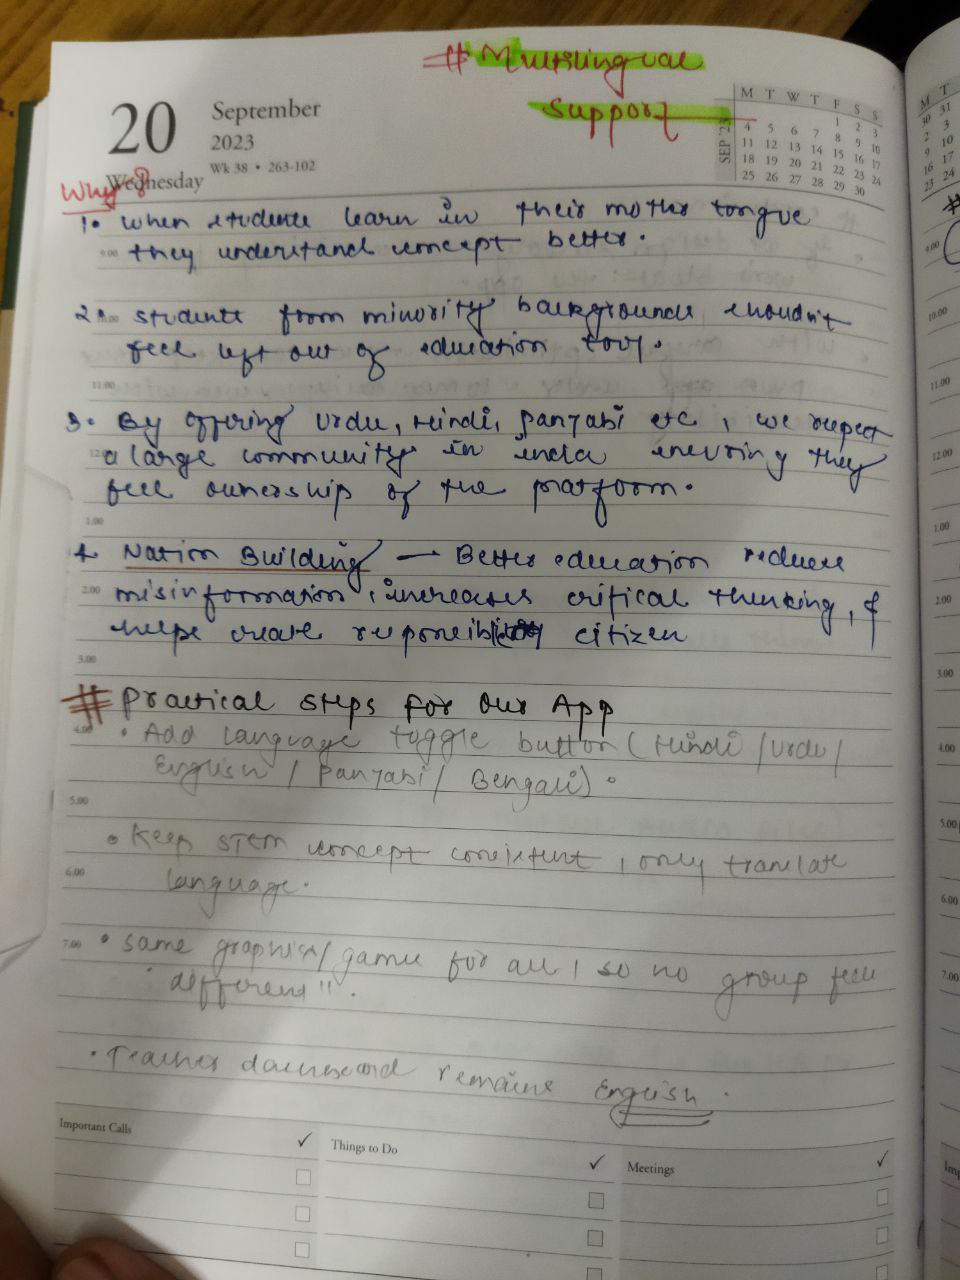 # Multilingual
Support
20
September
2023
Wk 38 • 263-102
Wednesday
SEP '23
M T W T F S S
1 2 3
4 5 6 7 8 9 10
11 12 13 14 15 16 17
18 19 20 21 22 23 24
25 26 27 28 29 30
Why?
1. When students learn in their mother tongue
9.00 they understand concept better.
2. students from minority backgrounds shouldn't
feel left out of education tool.
11.00
3. By offering Urdu, Hindi, Panjabi etc, we respect
a large community in india ensuring they
feel ownership of the platform.
1.00
4. Nation Building — Better education reduces
2.00 misinformation, increases critical thinking, &
helps create responsible citizen
3.00
# Practical Steps For Our App
4.00 • Add Language toggle button (Hindi / Urdu /
English / Panjabi / Bengali).
5.00
• Keep STEM concept consistent, only translate
6.00 language.
7.00 • Same graphics/games for all, so no group feels
different".
• Teacher dashboard remains English.
Important Calls ✓
Things to Do ✓
Meetings ✓
M T
30 31
2 3
9 10
16 17
23 24
9.00
10.00
11.00
12.00
1.00
2.00
3.00
4.00
5.00
6.00
7.00